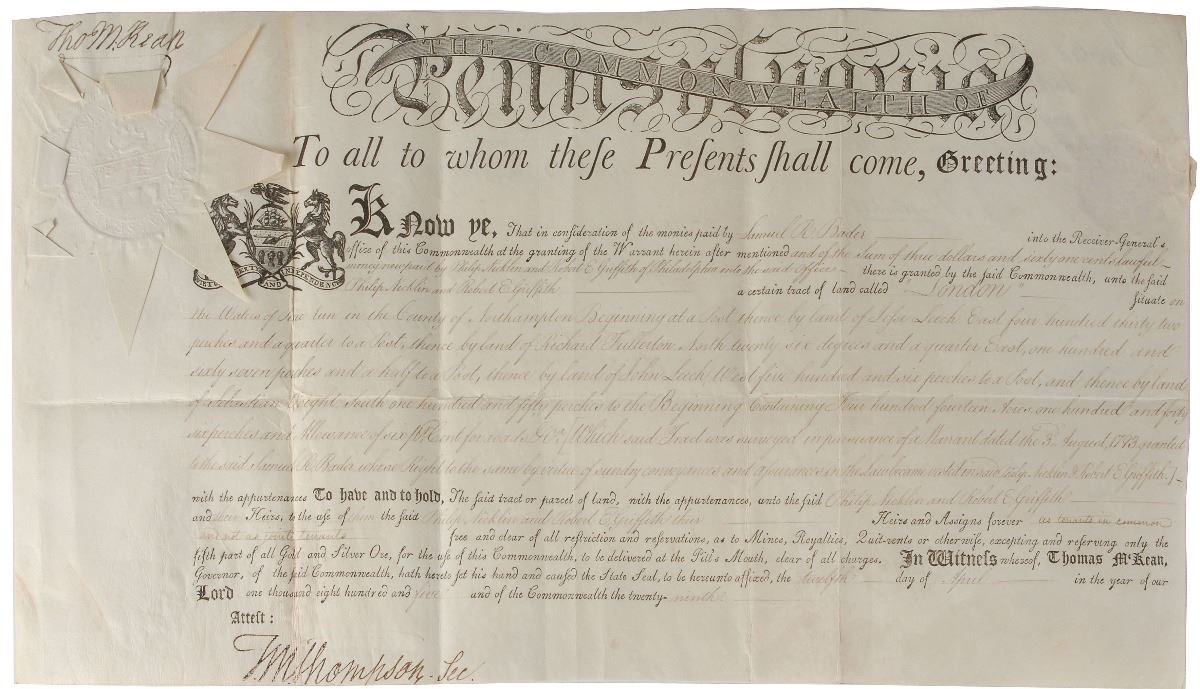 Tho M:Kean
THE COMMONWEALTH OF
Pennsylvania
To all to whom theſe Preſents ſhall come, Greeting:
Know ye, That in conſideration of the monies paid by Samuel R. Bader into the Receiver-General's
office of this Commonwealth at the granting of the Warrant herein after mentioned and of the Sum of three dollars and sixty one cents lawful
money now paid by Philip Nicklin and Robert E. Griffith of Philadelphia into the said Office there is granted by the ſaid Commonwealth, unto the ſaid
Philip Nicklin and Robert E. Griffith a certain tract of land called "London" ſituate on
VIRTUE LIBERTY AND INDEPENDENCE
the Waters of run in the County of Northampton Beginning at a Post thence by land of Jesse Leech East four hundred thirty two
perches and a quarter to a Post, thence by land of Richard Fullerton North twenty six degrees and a quarter East, one hundred and
sixty seven perches and a half to a Post, thence by land of John Leech West five hundred and six perches to a Post, and thence by land
of Sebastian South one hundred and fifty perches to the Beginning Containing Four hundred fourteen Acres, one hundred and forty
six perches and Allowance of six Cent for roads &ca. [Which said Tract was surveyed in pursuance of a Warrant dated the 3 August, 1793 granted
to the said Samuel R. Bader whose Right to the same by virtue of sundry conveyances and assurances in the Law became vested in said Philip Nicklin & Robert E. Griffith.]
with the appurtenances To have and to hold, The ſaid tract or parcel of land, with the appurtenances, unto the ſaid Philip Nicklin and Robert E. Griffith
and their Heirs, to the uſe of them the ſaid Philip Nicklin and Robert E. Griffith their Heirs and Aſſigns forever as tenants in common
and not as joint tenants free and clear of all reſtriction and reſervations, as to Mines, Royalties, Quit-rents or otherwiſe, excepting and reſerving only the
fifth part of all Gold and Silver Ore, for the uſe of this Commonwealth, to be delivered at the Pit's Mouth, clear of all charges. In Witneſs whereof, Thomas M'Kean,
Governor, of the ſaid Commonwealth, hath hereto ſet his hand and cauſed the State Seal, to be hereunto affixed, the twelfth day of April in the year of our
Lord one thouſand eight hundred and five and of the Commonwealth the twenty-ninth
Atteſt:
T. M. Thompson Sec.